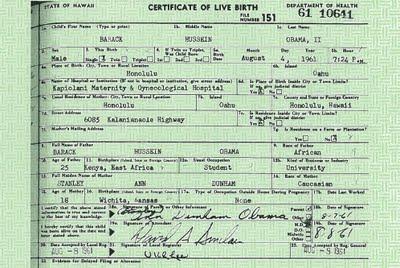 STATE OF HAWAII CERTIFICATE OF LIVE BIRTH DEPARTMENT OF HEALTH
FILE NUMBER 151 61 10641
1a. Child's First Name (Type or print) 1b. Middle Name 1c. Last Name
BARACK HUSSEIN OBAMA, II
2. Sex 3. This Birth 4. If Twin or Triplet, Was Child Born 5a. Birth Date Month Day Year 5b. Hour
Male Single Twin Triplet 1st 2nd 3rd August 4, 1961 7:24 P.M.
6a. Place of Birth: City, Town or Rural Location 6b. Island
Honolulu Oahu
6c. Name of Hospital or Institution (If not in hospital or institution, give street address) 6d. Is Place of Birth Inside City or Town Limits?
If no, give judicial district
Kapiolani Maternity & Gynecological Hospital Yes No
7a. Usual Residence of Mother: City, Town or Rural Location 7b. Island 7c. County and State or Foreign Country
Honolulu Oahu Honolulu, Hawaii
7d. Street Address 7e. Is Residence Inside City or Town Limits?
If no, give judicial district
6085 Kalanianaole Highway Yes No
7f. Mother's Mailing Address 7g. Is Residence on a Farm or Plantation?
Yes No
8. Full Name of Father 9. Race of Father
BARACK HUSSEIN OBAMA African
10. Age of Father 11. Birthplace (Island, State or Foreign Country) 12a. Usual Occupation 12b. Kind of Business or Industry
25 Kenya, East Africa Student University
13. Full Maiden Name of Mother 14. Race of Mother
STANLEY ANN DUNHAM Caucasian
15. Age of Mother 16. Birthplace (Island, State or Foreign Country) 17a. Type of Occupation Outside Home During Pregnancy 17b. Date Last Worked
18 Wichita, Kansas None
I certify that the above stated information is true and correct to the best of my knowledge.
18a. Signature of Parent or Other Informant 18b. Date of Signature
Ann Dunham Obama 8-7-61
I hereby certify that this child was born alive on the date and hour stated above.
19a. Signature of Attendant M.D. D.O. Midwife Other 19b. Date of Signature
8-8-61
20. Date Accepted by Local Reg. 22. Date Accepted by Reg. General
AUG -8 1961 AUG -8 1961
23. Evidence for Delayed Filing or Alteration